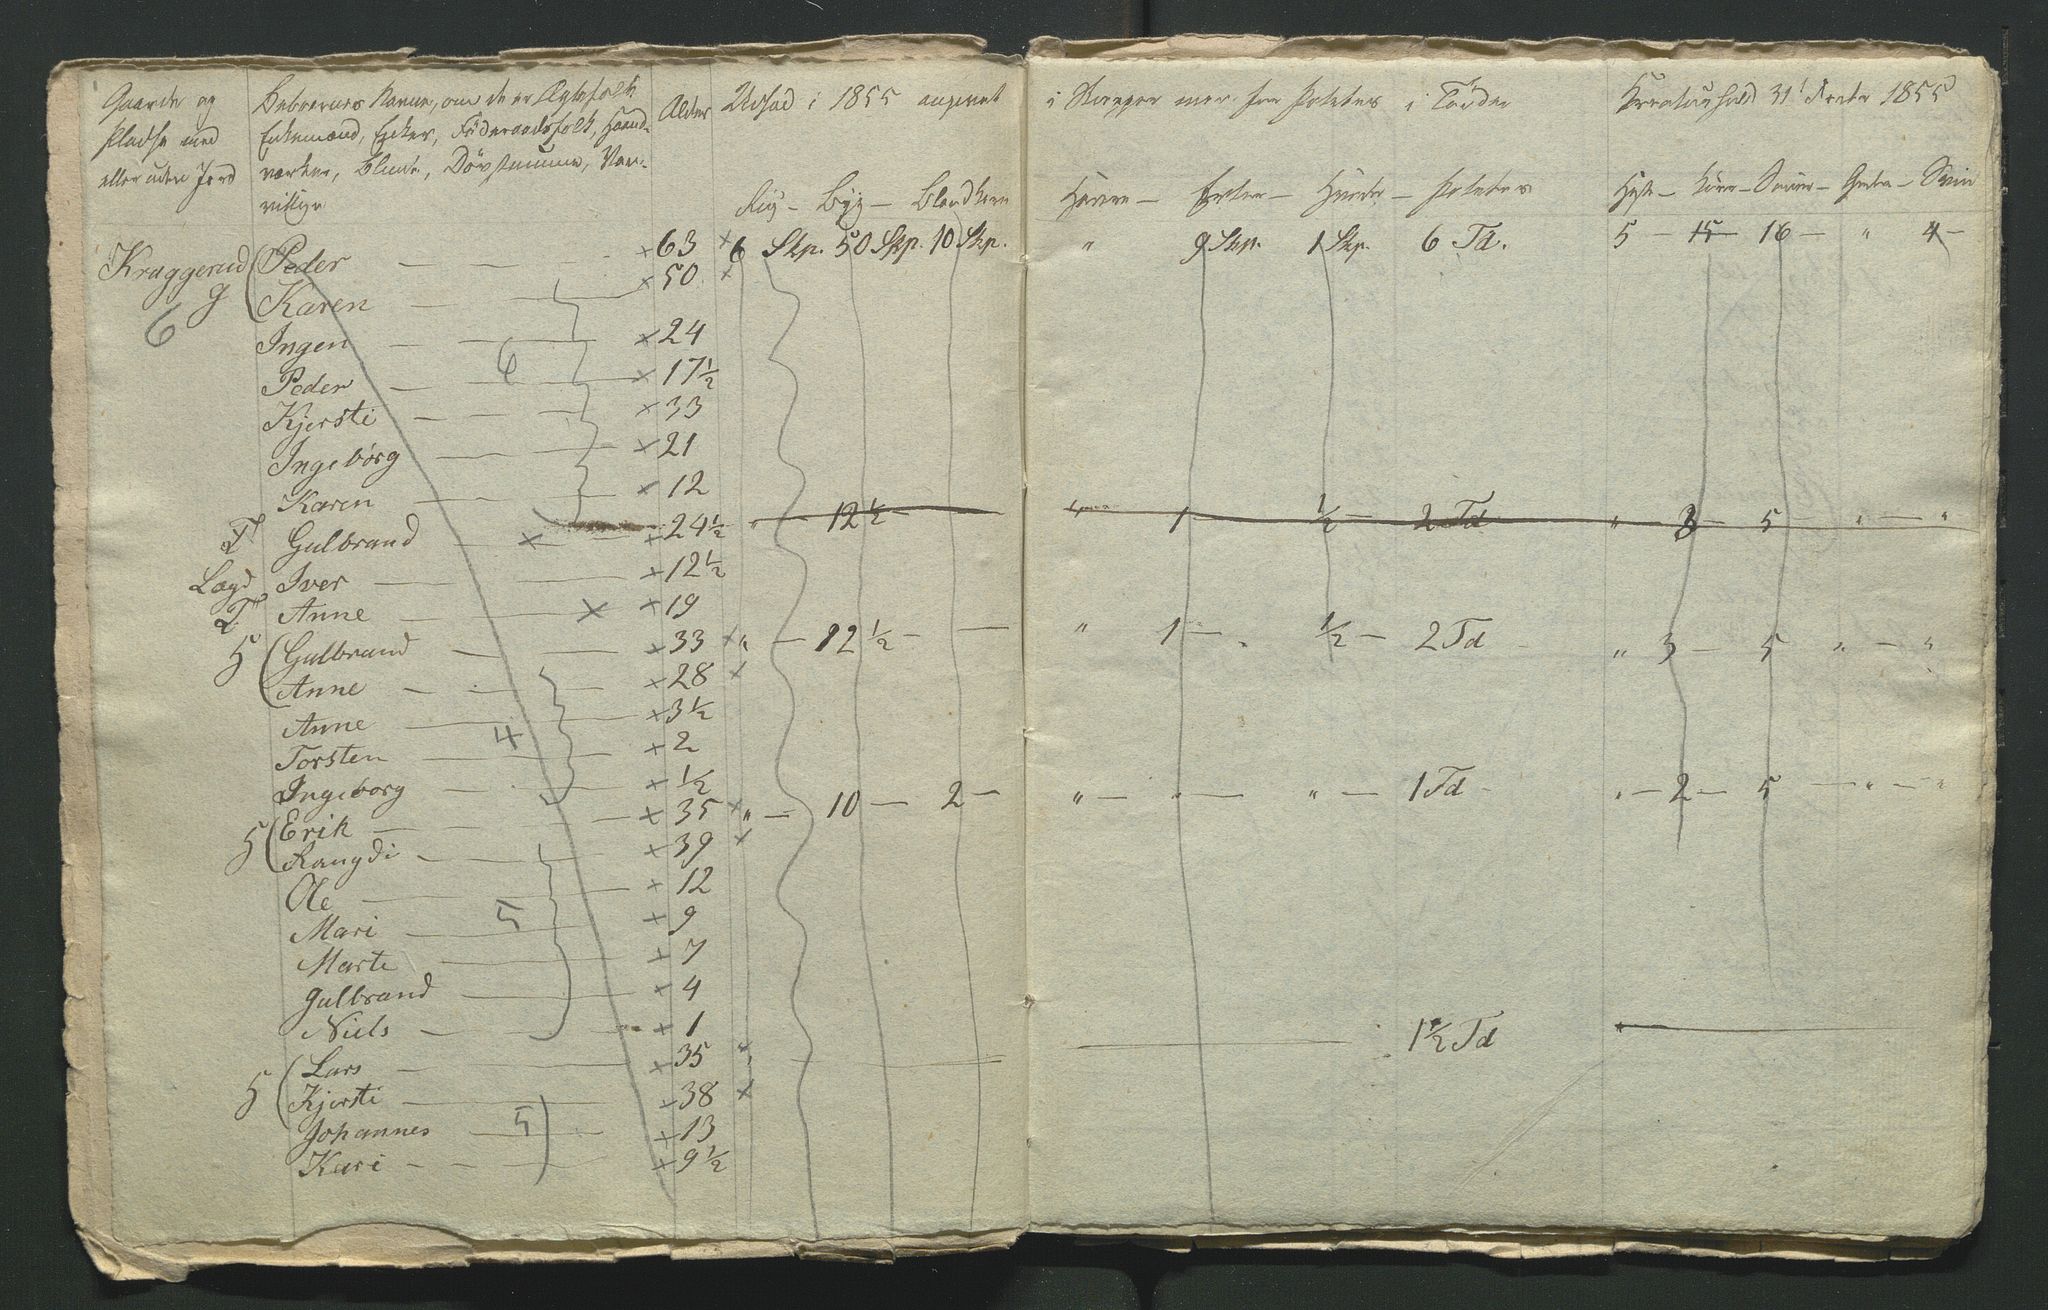 Gaarde og
Pladse med
eller uden Jord
Beboernes Navne, om de er Ægtefolk
Enkemænd, Enker, Föderaadsfolk, Haand-
værker, Blinde, Dövstumme, Van-
vittige
Alder
Udsæd i 1855 angivet
i Skjepper men for Potetes i Tönder
Kreaturhold 31' Decbr 1855
Rug - Byg - Blandkorn
Havre - Erter - Hvede - Potetes
Heste - Köer - Sauer - Geder - Svin
Kraggerud g
6
Peder 63 6 Skp. 50 Skp. 10 Skp. " 9 Skp. 1 Skp. 6 Td. 5 - 15 - 16 - " 4 -
Karen 50
Ingen 24
6
Peder 17½
Kjersti 33
Ingebörg 21
Karen 12
T Gulbrand 24½ " - 12½ - " 1 - ½ - 2 Td " - 3 - 5 - " - "
Lægd Iver 12½
T Anne 19
5 Gulbrand 33 " - 12½ - - " 1 - " ½ - 2 Td " 3 - 5 - " - "
Anne 28
Anne 3½
4
Torsten 2
Ingeborg ½
5 Erik 35 " - 10 - 2 - " - " - " - 1 Td " - 2 - 5 - " - "
Rangdi 39
Ole 12
5
Mari 9
Marte 7
Gulbrand 4
Niels 1
5 Lars 35 " 1½ Td
Kjersti 38
Johannes 13
5
Kari 9½